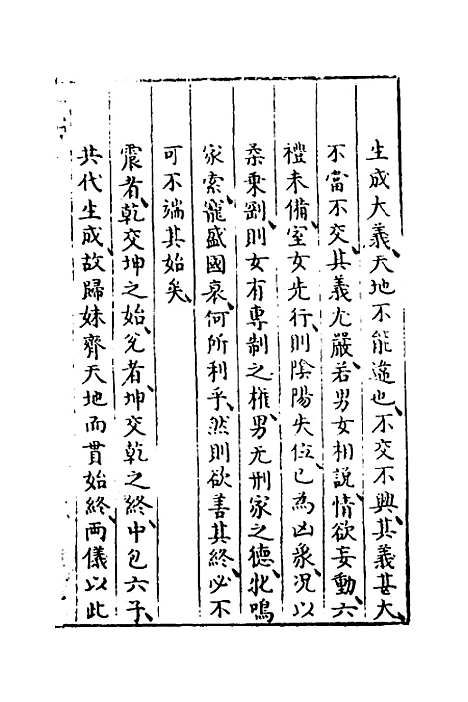 生成大義天地不能違也不交不興其義甚大
不當不交其義尤嚴若男女相說情欲妄動六
禮未備室女先行則陰陽失位已為凶象況以
柔乗剛則女有專制之權男无刑家之德牝鳴
家索寵盛國哀何所利乎然則欲善其終必不
可不端其始矣
震者乾交坤之始兌者坤交乾之終中包六子
共代生成故歸妹齊天地而貫始終兩儀以此